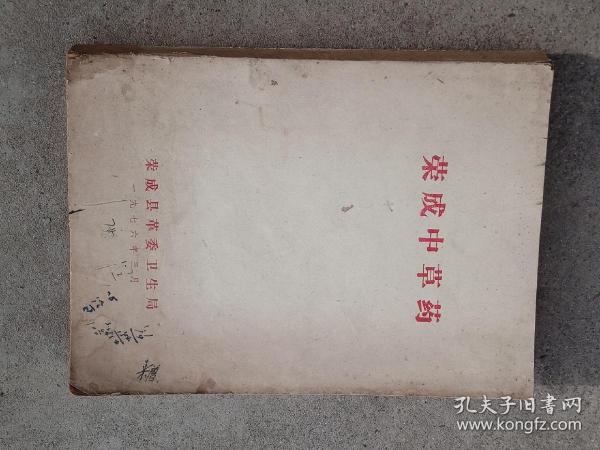 荣成中草药
荣成县革委卫生局
一九七六年三月
孔夫子旧书网
www.kongfz.com